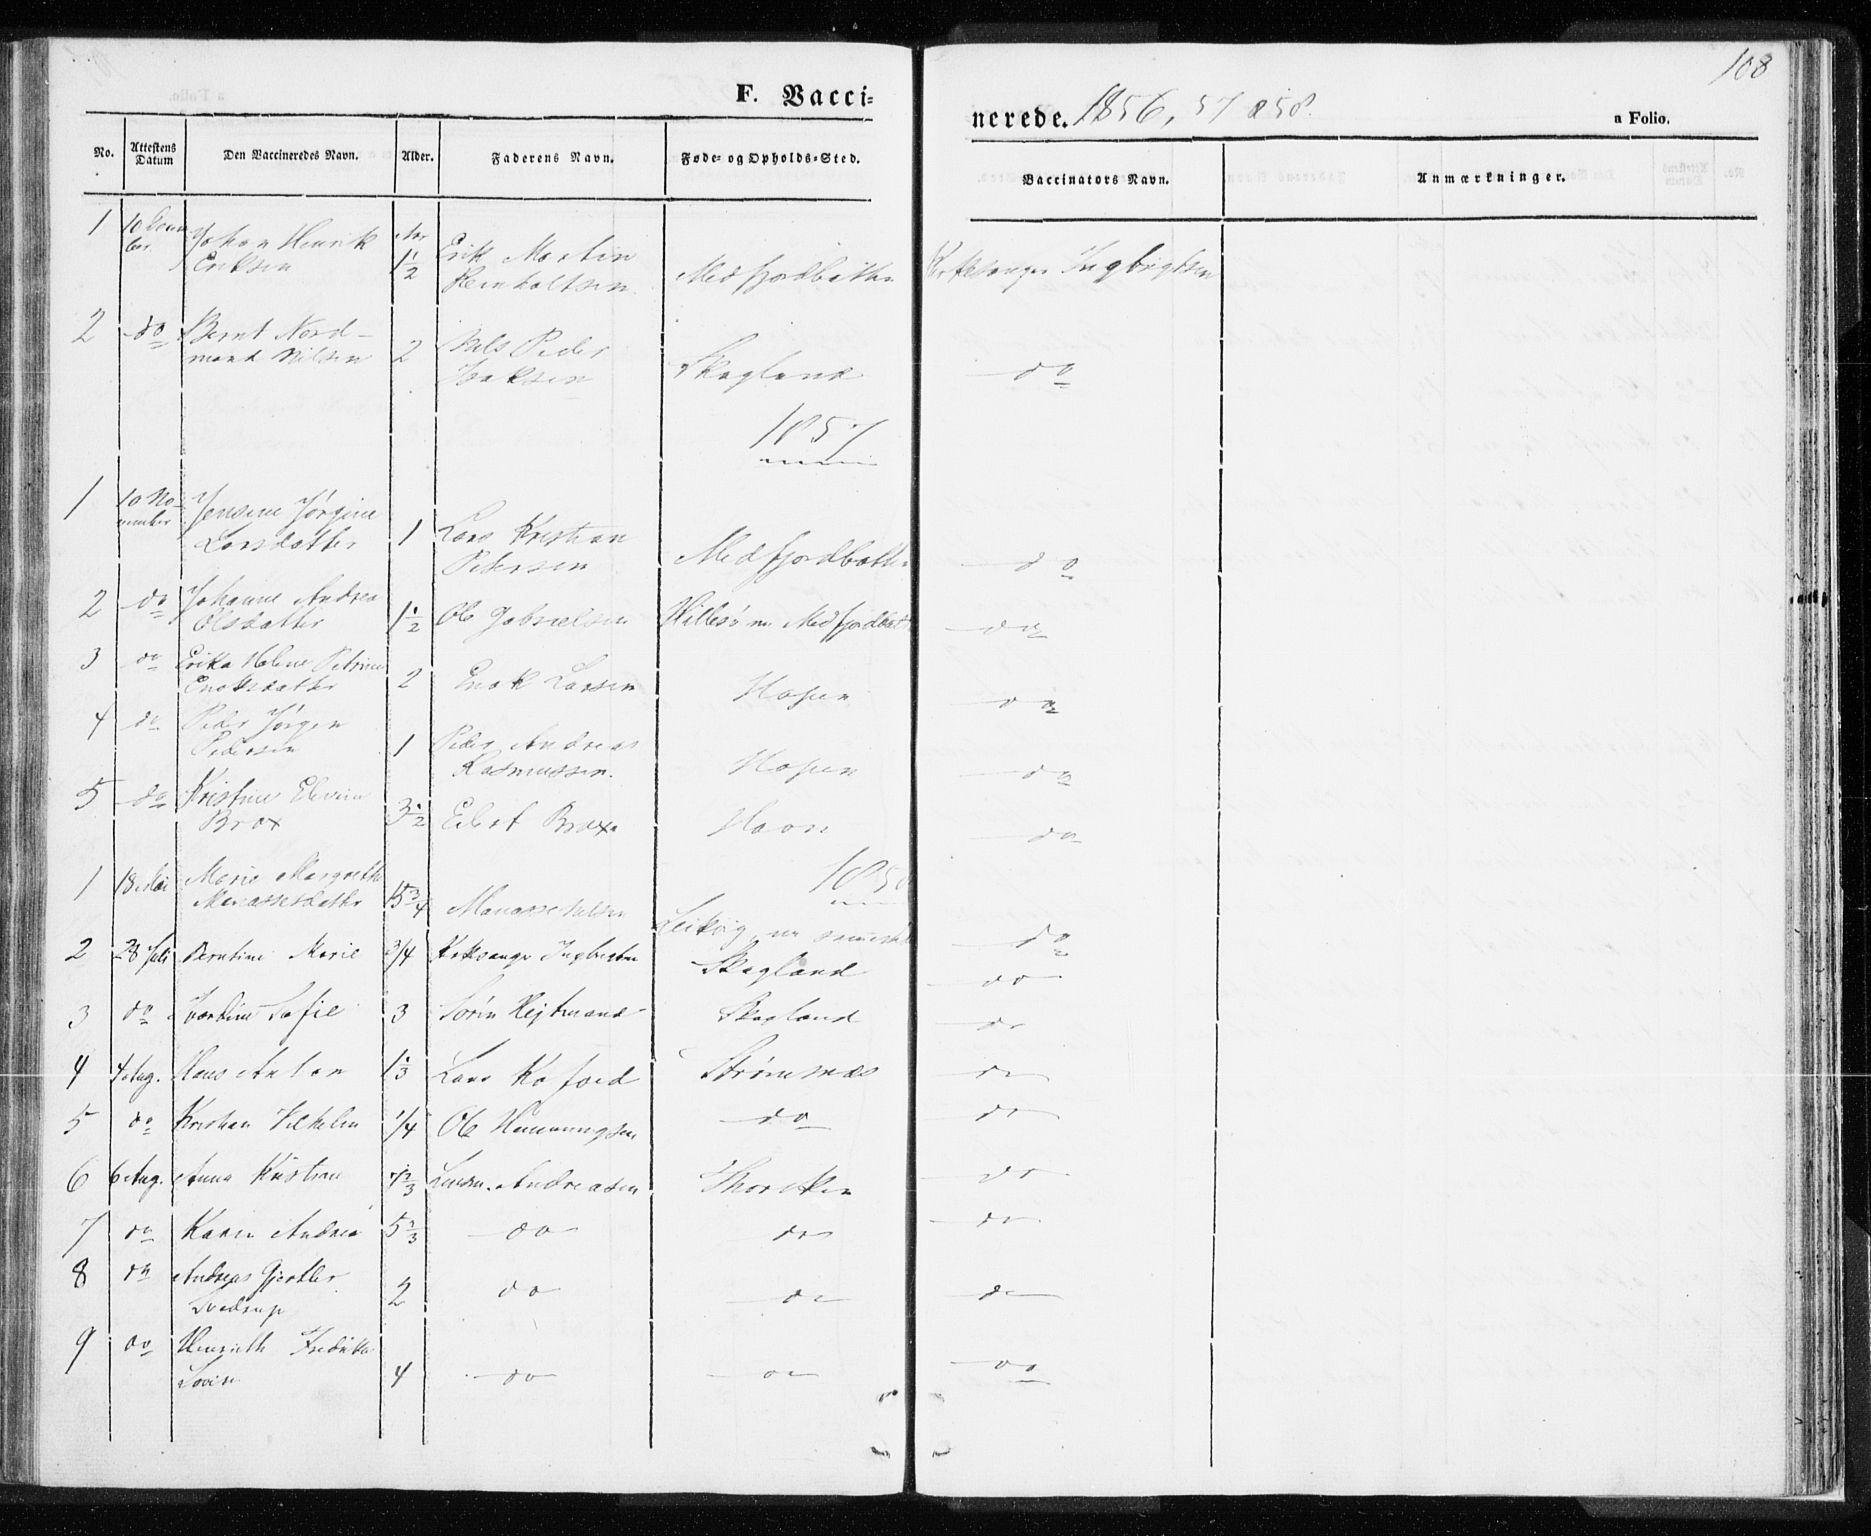 108
F. Vacci=
nerede. 1856, 57 & 58.
a Folio.
No. Attestens Datum Den Vaccineredes Navn. Alder. Faderens Navn. Føde- og Opholds-Sted. Vaccinators Navn. Anmærkninger.
1 Johan Henrik Aar Erik Martin
Eriksen 1 1/2 Reinholtsen Medfjordbotten Kirkesanger Ingbrigtsen
2 do Bernt Nord- Nils Peder
mand Nilsen 2 Isaksen Skagland do
1857
1 10 No- Jensine Jørgine
vember Larsdatter 1 Lars Kristian
Petersen Medfjordbotten do
2 do Johanne Andrea
Olsdatter 1 1/2 Ole Gabrielsen Hillesø nu Medfjordbott do
3 do Erika Helene Petrine
Enoksdatter 2 Enok Larsen Hopen do
4 do Peder Jørgen
Pedersen 1 Peder Andreas
Rasmussen. Hopen do
5 do Kristine Elevine
Brox 3 1/2 Edert Brox Havn do
1858
1 18 Mai Marie Margrethe
Manassesdatter 15 3/4 Manasse Nilsen Leikvig nu do
2 28 Juli Berntine Marie 3/4 Kirksanger Ingbrigtsen Skagland do
3 do Sofie 3 Søren Hejtmand Skagland do
4 4 Aug. Hans Anton 1 1/3 Lars Kofoed Strømsnæs do
5 do Kristian Vilhelm 1/4 Ole Henningsen do do
6 6 Aug. Anna Kristine 7 2/3 Lensm. Andreasen do
7 do Karen Andrea 5 2/3 do do do
8 do Andreas Gjertler
Svedrup 2 do do do
9 do Henriette Fredrikke
Lovise 4 do do do